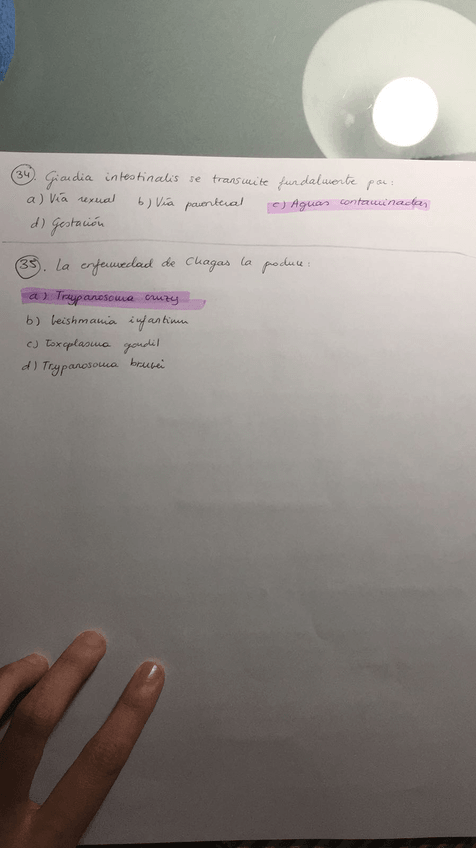 34. Giardia intestinalis se transmite fundalmente por:
a) Vía sexual b) Vía parenteral c) Aguas contaminadas
d) Gestación
35. La enfermedad de Chagas la produce:
a) Trypanosoma cruzy
b) Leishmania infantinu
c) Toxoplasma gondil
d) Trypanosoma brucei